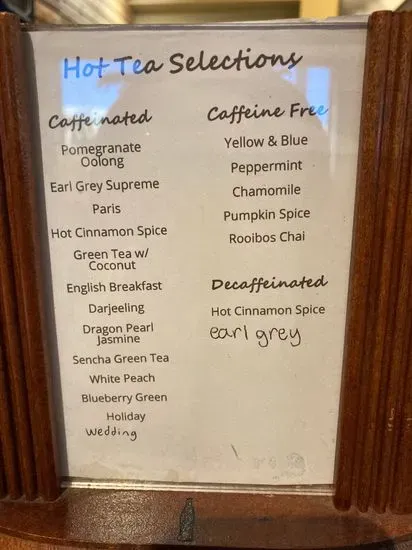 Hot Tea Selections
Caffeinated
Pomegranate
Oolong
Earl Grey Supreme
Paris
Hot Cinnamon Spice
Green Tea w/
Coconut
English Breakfast
Darjeeling
Dragon Pearl
Jasmine
Sencha Green Tea
White Peach
Blueberry Green
Holiday
wedding
Caffeine Free
Yellow & Blue
Peppermint
Chamomile
Pumpkin Spice
Rooibos Chai
Decaffeinated
Hot Cinnamon Spice
earl grey